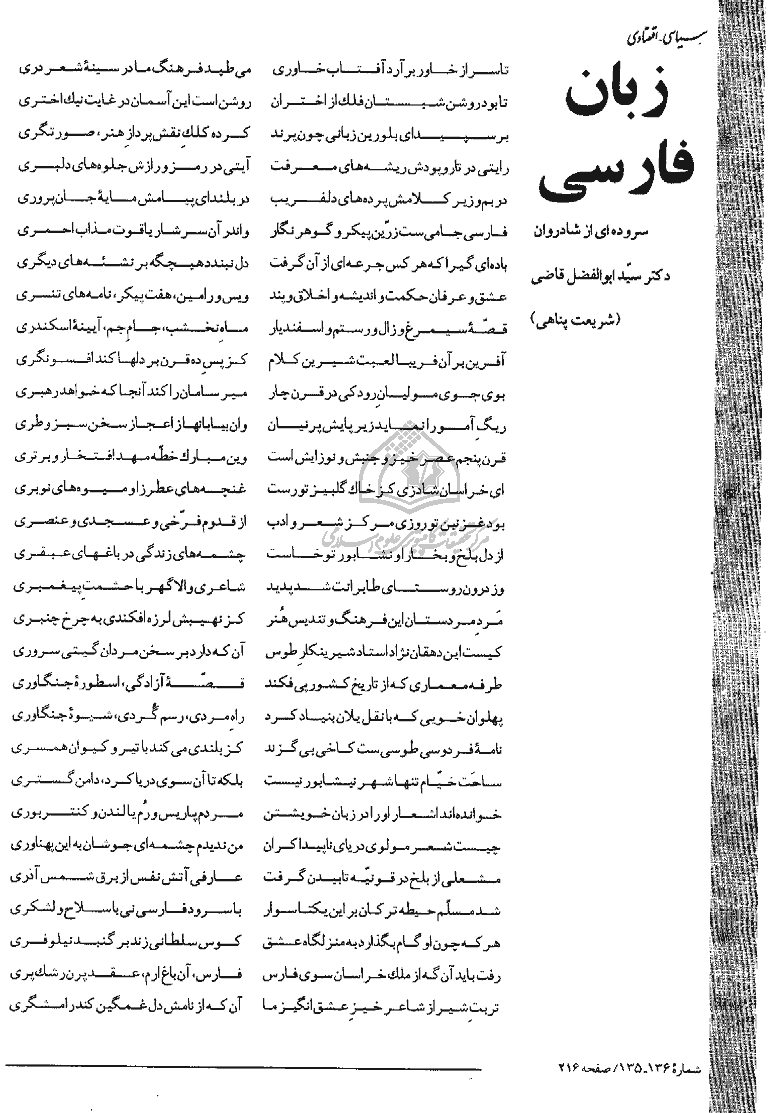 سیاسی-اقتصادی
زبان
فارسی
سروده‌ای از شادروان
دکتر سیّد ابوالفضل قاضی
(شریعت پناهی)
تا سر از خاور برآرد آفتاب خاوری می‌طپد فرهنگ ما در سینهٔ شعر دری
تا بود روشن شبستان فلك از اختران روشن است این آسمان در غایت نیك اختری
بر سپیدای بلورین زبانی چون پرند کرده کلكِ نقش پردازِ هنر، صورتگری
رایتی در تار و پودش ریشه‌های معرفت آیتی در رمز و رازش جلوه‌های دلبری
در بم و زیر کلامش پرده‌های دلفریب در بلندای پیامش مایهٔ جان‌پروری
فارسی جامی‌ست زرّین پیکر و گوهر نگار واندر آن سرشار یاقوت مذاب احمری
باده‌ای گیرا که هر کس جرعه‌ای از آن گرفت دل نبندد هیچگه بر نشئه‌های دیگری
عشق و عرفان حکمت و اندیشه و اخلاق و پند ویس و رامین، هفت پیکر، نامه‌های تنسری
قصّهٔ سیمرغ و زال و رستم و اسفندیار ماهِ نخشب، جامِ جم، آیینهٔ اسکندری
آفرین بر آن فریبا لعبت شیرین کلام کز پسِ ده قرن بر دلها کند افسونگری
بوی جوی مولیان رودکی در قرن چار میر سامان را کند آنجا که خواهد رهبری
ریگِ آمو را نماید زیر پایش پرنیان وان بیابانها ز اعجاز سخن سبز و طری
قرن پنجم عصر خیز و جنبش و نوزایش است وین مبارك خطّه مهد افتخار و برتری
ای خراسان شادزی کز خاك گلبیز تو رست غنچه‌های عطرزا و میوه‌های نوبری
بود غزنین تو روزی مرکز شعر و ادب از قدوم فرّخی و عسجدی و عنصری
از دل بلخ و بخارا و نشابور تو خاست چشمه‌های زندگی در باغهای عبقری
وز درون روستای طابرانت شد پدید شاعری والاگهر با حشمتِ پیغمبری
مَردِ مردستان این فرهنگ و تندیس هُنر کز نهیبش لرزه افکندی به چرخ چنبری
کیست این دهقان نژاد استاد شیرینکار طوس آن که دارد بر سخن مردان گیتی سروری
طرفه معماری که از تاریخ کشور پی فکند قصّهٔ آزادگی، اسطورهٔ جنگاوری
پهلوان خویی که با نقل یلان بنیاد کرد راه مردی، رسم گُردی، شیوهٔ جنگاوری
نامهٔ فردوسی طوسی ست کاخی بی گزند کز بلندی می‌کند با تیر و کیوان همسری
ساحت خیّام تنها شهر نیشابور نیست بلکه تا آن سوی دریا کرد، دامن گستری
خوانده‌اند اشعار او را در زبان خویشتن مردم پاریس و رُم یا لندن و کنتربوری
چیست شعر مولوی دریای ناپیدا کران من ندیدم چشمه‌ای جوشان به این پهناوری
مشعلی از بلخ در قونیّه تابیدن گرفت عارفی آتش نفس از برق شمس آذری
شد مسلّم حیطه ترکان بر این یکتا سوار با سرود فارسی نی با سلاح و لشکری
هر که چون او گام بگذارد به منزلگاه عشق کوس سلطانی زند بر گنبد نیلوفری
رفت باید آن گه از ملك خراسان سوی فارس فارس، آن باغ ارم، عقد پرن رشك پری
تربتِ شیراز شاعر خیزِ عشق انگیزِ ما آن که از نامش دل غمگین کند رامشگری
شمارهٔ ۱۳۶ـ۱۳۵/ صفحه ۲۱۶